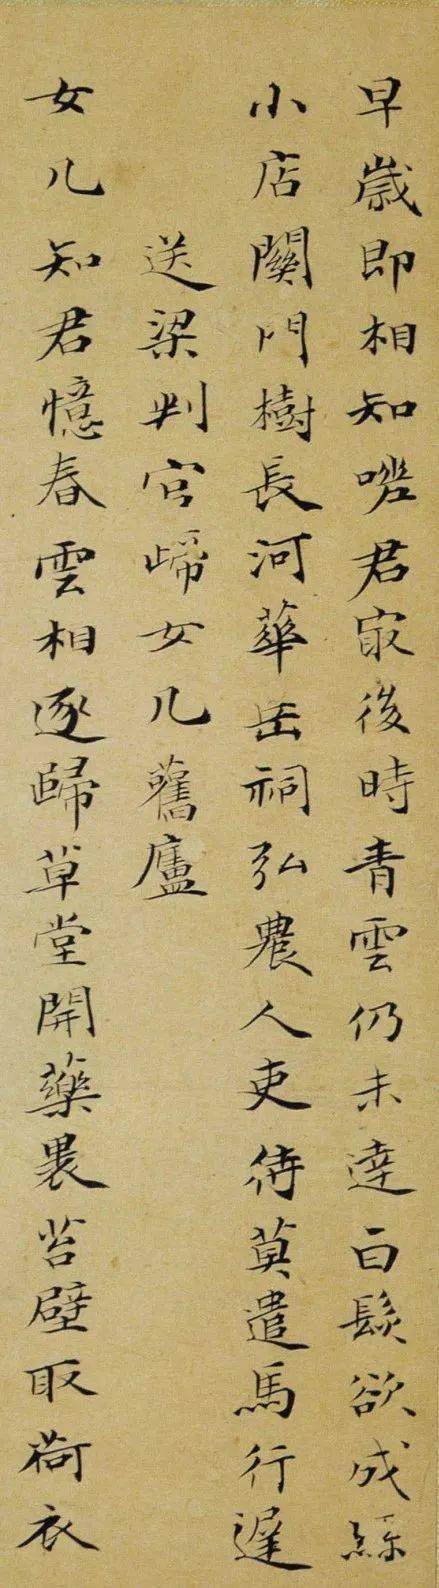 早歲即相知嗟君最後時青雲仍未達白髮欲成絲
小店關門樹長河華岳祠弘農人吏待莫遣馬行遲
送梁判官歸女几舊廬
女几知君憶春雲相逐歸草堂開藥裹苔壁取荷衣